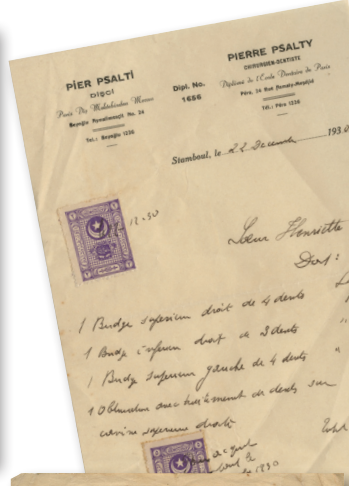 PİER PSALTİ
DİŞÇİ
Paris Diş Mektebinden Mezun
Beyoğlu No. 24
Tel.: Beyoğlu 1236
Dipl. No.
1656
PIERRE PSALTY
CHIRURGIEN-DENTISTE
Diplômé de l'École Dentaire de Paris
Péra, 24 Rue
Tél.: Péra 1236
Stamboul, le 22 Decembre 1930
12.30
Sœur Henriette
Doit:
1 Bridge superieur droit de 4 dents
1 Bridge inferieur droit de 3 dents "
1 Bridge superieur gauche de 4 dents "
1 Obturation avec traitement de dents sur
canine superieure droite
acquit
1930